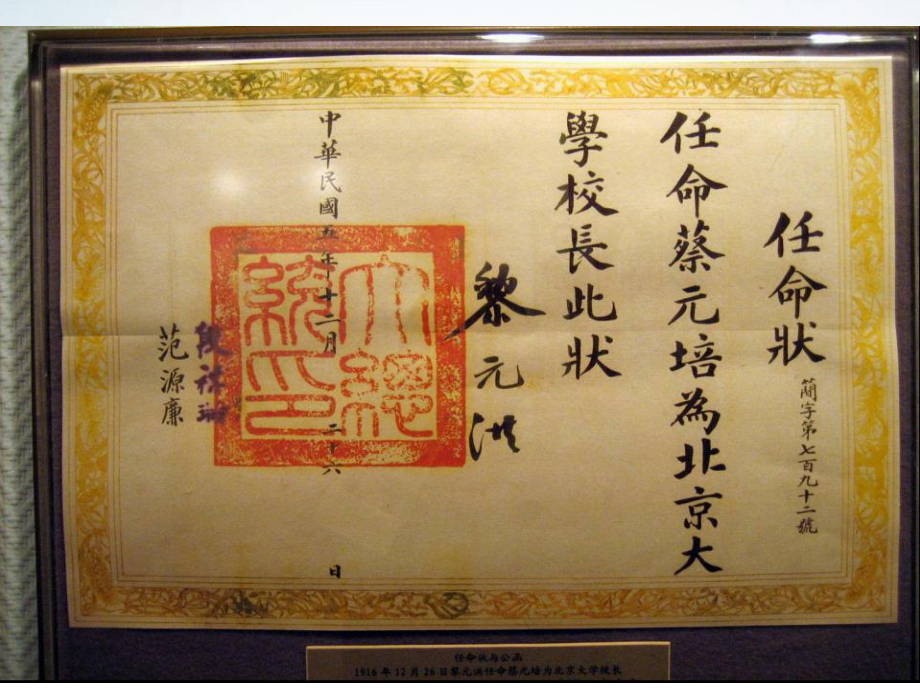 任命狀
簡字第七百九十二號
任命蔡元培為北京大
學校長此狀
黎元洪
大總統印
中華民國五年十二月二十六日
段祺瑞
范源廉
任命状与公函
1916 年 12 月 26 日黎元洪任命蔡元培为北京大学校长